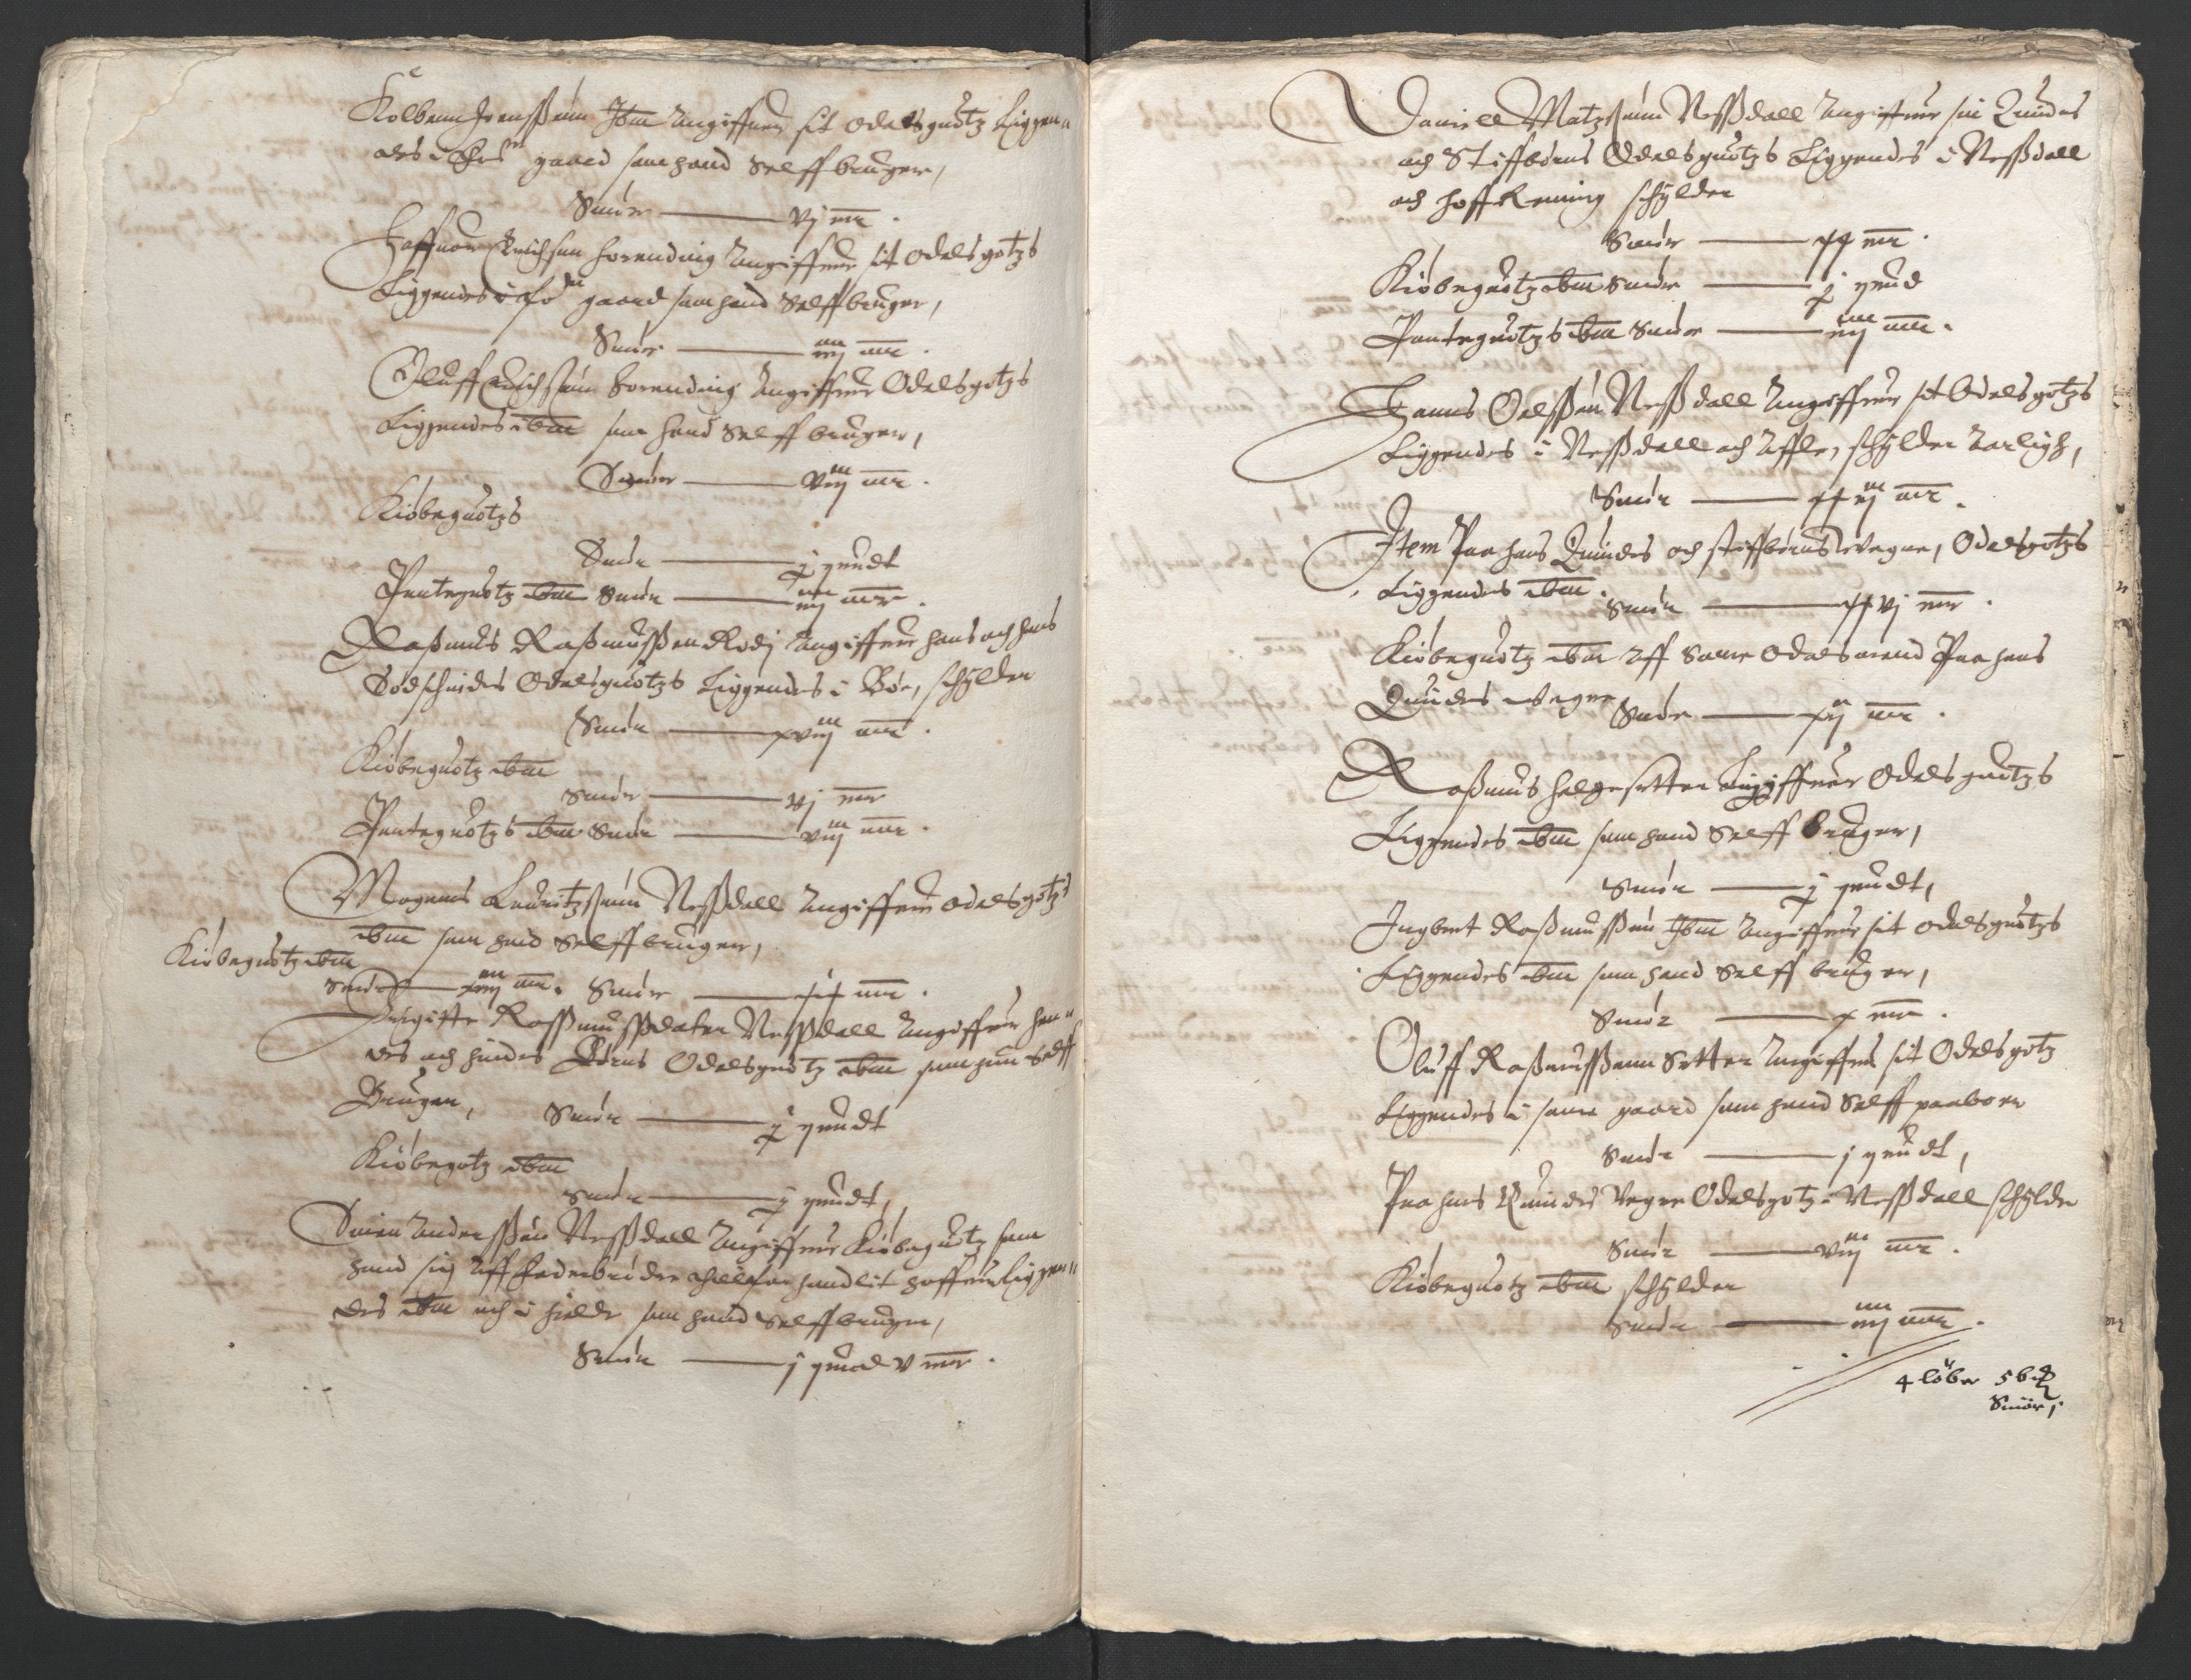 Kolbenn Jenssøn Ibm Angiffuer sit odelsguotz Liggen-
des i gaard som hand selff bruger,
Smør —— vj mr.
Haffuor Erichsen horending Angiffuer sit odelsgotzs
Liggendes i gaard som hand selff bruger,
Smør —— iiij mr.
Oluff Erichssøn horending Angiffuer Odelsgotzs
Liggendes ibm som hand selff bruger,
Smør —— viij mr.
Kiøbeguotzs
Smør —— j pundt
Panteguotz ibm Smør —— iiij mr.
Rasmus Rasmussøen Rodj Angiffuer hans och hans
Sødschindes Odelsguotzs Liggendes i Bøe, schylder
Smør —— xviij mr.
Kiøbeguotz ibm
Smør —— vj mr
Panteguotzs ibm Smør —— viij mr.
Mogens Lauritzsønn Nessdall Angiffuer odelsgotzs
ibm som hand selff bruger,
Kiøbeguotz ibm
Smør —— xiiij mr. Smør —— mr.
Birgitte Rassmussdater Nessdall Angiffuer hen-
des och hindes Børns Odelsguotz ibm som hun selff
Bruger, Smør —— j pundt
Kiøbegotz ibm
Smør —— j pundt,
Suien Anderssøn Nessdall Angiffuer Kiøbeguotz som
hand sig Aff Faderbrødre haffuer Liggen-
des ibm och i hielde som hand selff bruger,
Smør —— j pund v mr.
Daniell Matzsønn Nessdall Angiffuer sin Quindes
och Stiffbørns Odelsguotzs Liggendes i Nessdall
och hoffRenning schylder
Smør —— xx mr.
Kiøbeguotz ibm Smør —— j pund
Panteguotzs ibm Smør —— iiij mr.
Hanns Oelssøn Nessdall Angiffuer sit Odelsgotzs
Liggendes i Nessdall och Affle, schylder Aarligh,
Smør —— xxiij mr.
Item Paa hans Quindes och stiffbørns Vegne, Odelsgotzs
Liggendes ibm.
Smør —— xxvj mr.
Kiøbeguotz ibm Aff Same Odelsmend Paa hans
Quindes Vegne Smør —— xij mr.
Rasmus Helgesetter Angiffuer Odelsguotzs
Liggendes ibm som hand selff bruger,
Smør —— j pundt,
Ingbret Rasmussøn Ibm Angiffuer sit odelsguotzs
Liggendes ibm som hand selff bruger,
Smør —— x mr.
Oluff Rasmussønn Setter Angiffuer sit Odelsgotz
Liggendes i same gaard som hand selff paaboer
Smør —— j pundt,
Paa hans Quindes Vegne Odelsgotz i Nessdall schylder
Smør —— viij mr.
Kiøbeguotz ibm schylder
Smør —— iiij mr.
4 løber 5
Smør,